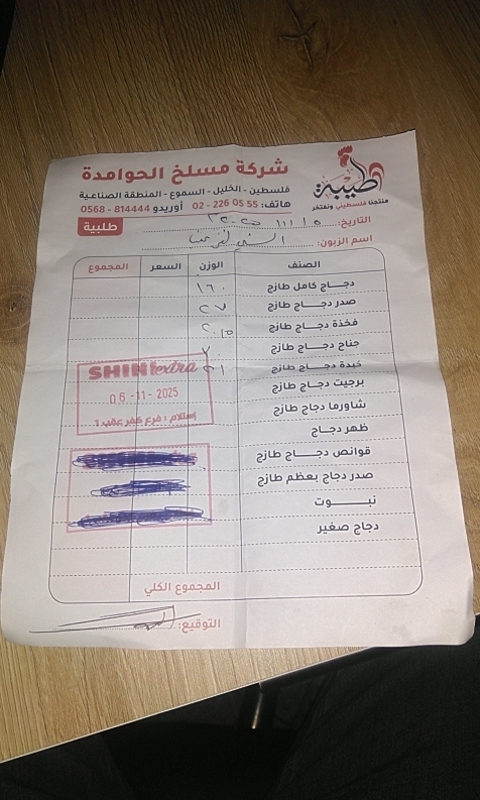 طيبة
منتجنا فلسطيني ونفتخر
شركة مسلخ الحوامدة
فلسطين - الخليل - السموع - المنطقة الصناعية
هاتف: 55 05 226 - 02 أوريدو 814444 - 0568
طلبية
التاريخ:
اسم الزبون:
الصنف الوزن السعر المجموع
دجاج كامل طازج ١٦٠
صدر دجاج طازج ٢٧
فخذة دجاج طازج
جناح دجاج طازج ٧
كبدة دجاج طازج ٢١
برجيت دجاج طازج
شاورما دجاج طازج
ظهر دجاج
قوانص دجاج طازج
صدر دجاج بعظم طازج
نبوت
دجاج صغير
SHINI extra
06 -11- 2025
استلام : فرع كفر عقب 1
المجموع الكلي
التوقيع: